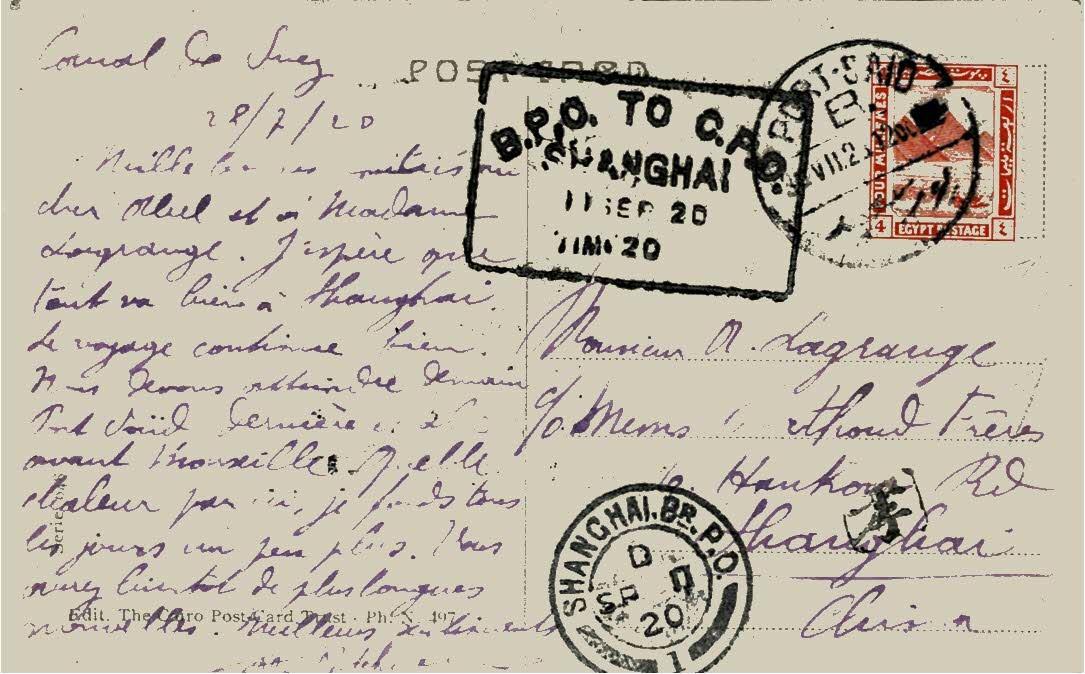 Canal de Suez
POST CARD
28/7/20
Mille bonnes amitiés au
cher Abel et à Madame
Lagrange. J'espère que
tout va bien à Shanghai.
Le voyage continue bien.
Nous devons atteindre demain
Port Saïd dernière
avant Marseille. Quelle
chaleur par ici, je fonds tous
les jours un peu plus. Vous
aurez bientôt de plus longues
nouvelles. Meilleurs sentiments
B.P.O. TO C.P.O.
SHANGHAI
11 SEP 20
TIME 20
PORT-SAID
VII.2
FOUR MILLIEMES
EGYPT POSTAGE
4
٤
٤
Monsieur A. Lagrange
c/o Mems Frères
Hankow Rd
Shanghai
China
SHANGHAI.BR.P.O.
D
SP
20
1
Edit. The Cairo Post Card Trust - Ph. N. 497
Serie